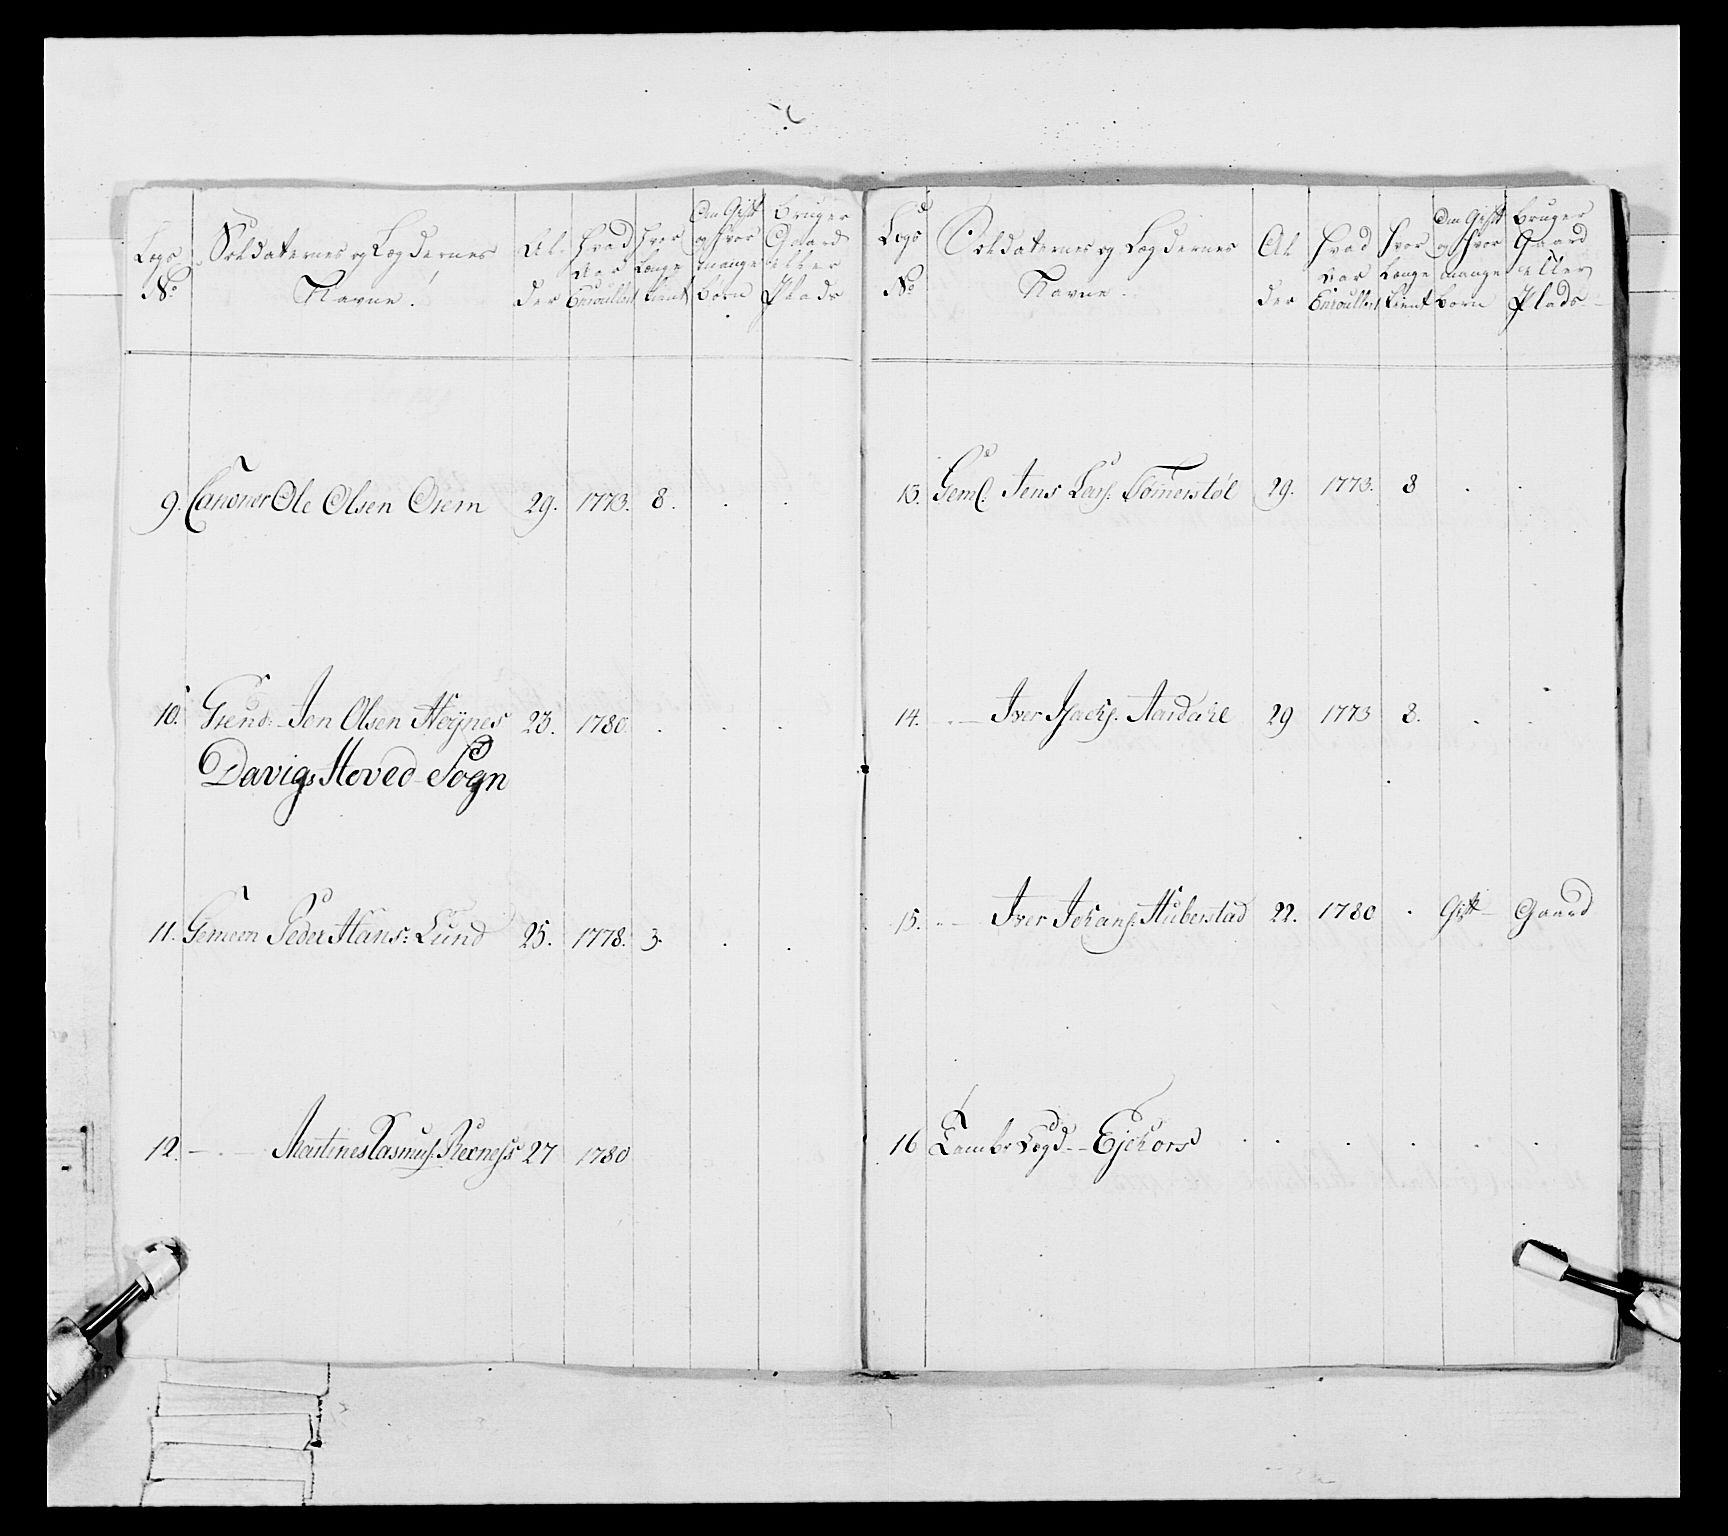 Legs No Soldaternes og Legdernes Navne! Alder Hvad Aar Enroullert Hvor Længe tient Om Gift og hvor mange Børn Bruger Gaard eller Plads
9. Canoner Ole Olsen Orem 29. 1773. 8. . .
10. Grend: Jon Olsen Høynes 23. 1780. . . .
Davigs Hoved-Sogn
11. Gemeen Peder Hans: Lund 25. 1778. 3. . .
12. - . - Martines Rasmus: 27 1780
Legs No Soldaternes og Legdernes Navne. Alder Hvad Aar Enroullert Hvor Længe tient Om Gift og hvor mange Børn Bruger Gaard eller Plads
13. Gem: Jens Lars: 29. 1773. 8 . .
14. - - Iver Aardahl 29 1773 8. . .
15. - - Iver Johans: 22. 1780 . Gift- Gaard
16 Legd -- . . . . . .